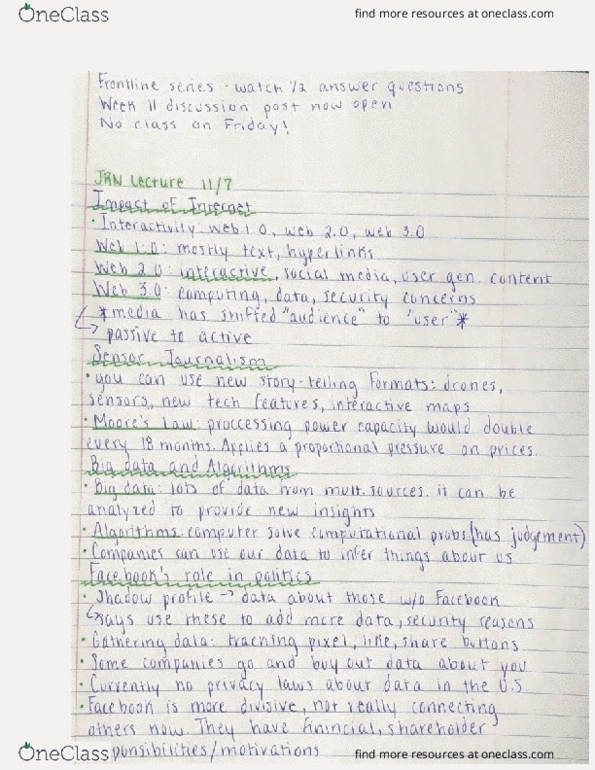 OneClass
find more resources at oneclass.com
Frontline series - watch 1/2 answer questions
Week 11 discussion post now open
No class on Friday!
JRN Lecture 11/7
Impact of Internet
• Interactivity: web 1.0, web 2.0, web 3.0
Web 1.0: mostly text, hyperlinks
Web 2.0: interactive, social media, user gen. content
Web 3.0: computing, data, security concerns
*media has shifted "audience" to "user"*
↳ passive to active
Sensor Journalism
• you can use new story-telling formats: drones,
sensors, new tech features, interactive maps
• Moore's Law: proccessing power capacity would double
every 18 months. Applies a proportional pressure on prices.
Big data and Algorithms
• Big data: lots of data from mult. sources. it can be
analyzed to provide new insights
• Algorithms: computer solve computational probs. (has judgement)
• Companies can use our data to infer things about us
Facebook's role in politics
• Shadow profile → data about those w/o Facebook
↳ says use these to add more data, security reasons
• Gathering data: tracking pixel, like, share buttons
• Some companies go and buy out data about you
• Currently no privacy laws about data in the U.S.
• Facebook is more divisive, not really connecting
others now. They have finincial, shareholder
ponsibilities/motivations
OneClass
find more resources at oneclass.com